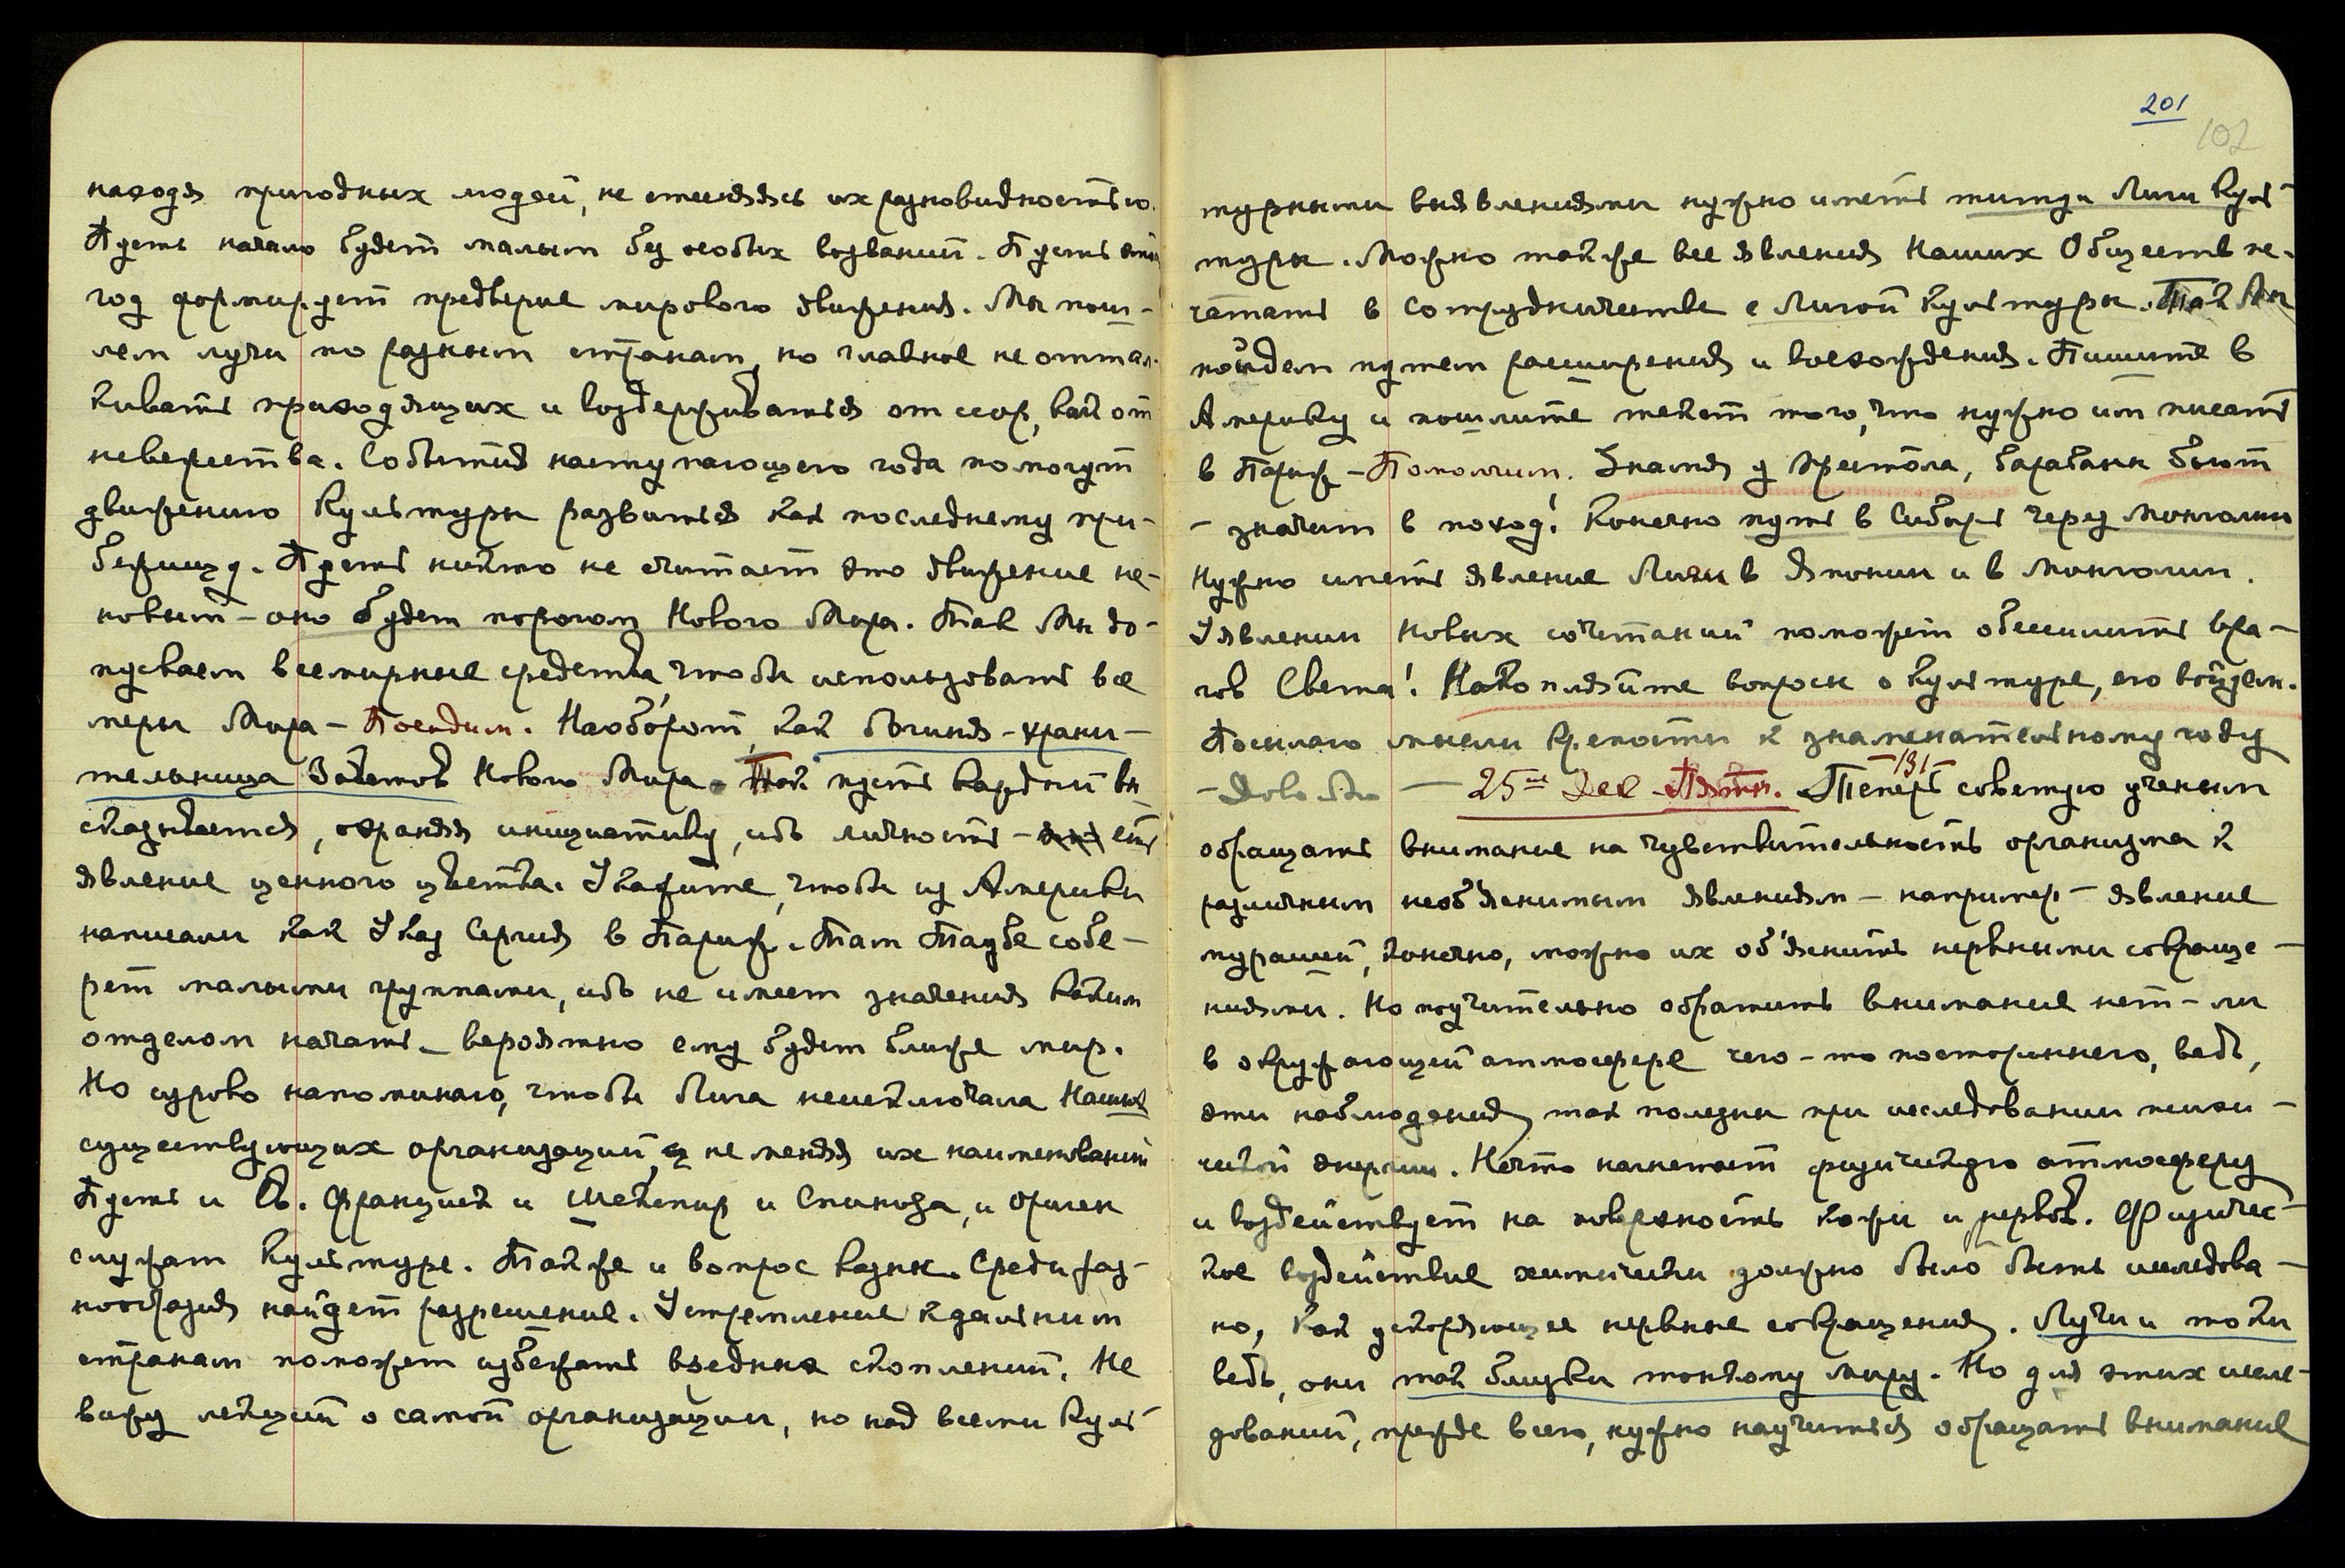 находя пригодных людей, не стесняясь их разновидностью.
Пусть начало будет малым без особых воззваний. Пусть этот
год формирует предверие мирового движения. Мы пош-
лем лучи по разным странам, но главное не оттал-
кивать приходящих и воздерживаться от ссор, как от
невежества. События наступающего года помогут
движению Культуры развиться как последнему при-
бежищу. Пусть никто не считает это движение не-
новым – оно будет порогом Нового Мира. Так Мы до-
пускаем всемирные средства, чтобы использовать все
меры Мира – Поендим. Наоборот, как богиня – храни-
тельница Заветов Нового Мира. Так пусть каждый вы
сказывается, охраняя инициативу, ибо личность – есть
явление ценного цветка. Укажите, чтобы из Америки
написали как Указ Сергия в Париж. Там Таубе собе-
рет малыми группами, ибо не имеет значения каким
отделом начать – вероятно ему будет ближе мир.
Но сурово напоминаю, чтобы Лига не исключала Наших
существующих организаций, не меняя их наименований
Пусть и Св. Франциск и Шекспир и Спиноза, и Ориген
служат Культуре. Также и вопрос казны. Среди раз-
нообразия найдет разрешение. Устремление к дальним
странам поможет избежать вредных скоплений. Не
вижу лекций о самой организации, но над всеми Куль-
201
102
турными выявлениями нужно иметь титул Лиги Куль-
туры. Можно также все явления Наших Обществ пе-
чатать в сотрудничестве с Лигой Культуры. Так Мы
пойдем путем расширения и восхождения. Пишите в
Америку и пошлите текст того, что нужно им писать
в Париж – Помолчим. Знамя у престола, барабаны бьют
– значит в поход! Конечно путь в Сибирь через Монголию
Нужно иметь явление Лиги в Японии и в Монголии.
Явлении новых сочетаний поможет обессилить вра-
гов Света! Накопляйте вопросы о культуре, его войдем.
Посылаю мысли крепости к знаменательному году
– Довольно – 25ое Дек –31– Пятн. Теперь советую ученым
обращать внимание на чувствительность организма к
различным необ'яснимым явлениям – например – явление
мурашей, конечно, можно их об'яснить нервными сокраще-
ниями. Но поучительно обратить внимание нет-ли
в окружающей атмосфере чего-то постороннего, ведь,
эти наблюдения так полезны при исследовании психи-
ческой энергии. Нечто нагнетает физическую атмосферу
и воздействует на поверхность кожи и нервов. Физичес-
кое воздействие химически должно было быть исследова-
но, как ускоряющее нервные сокращения. Лучи и токи
ведь, они так близки тонкому миру. Но для этих иссле-
дований, прежде всего, нужно научиться обращать внимание